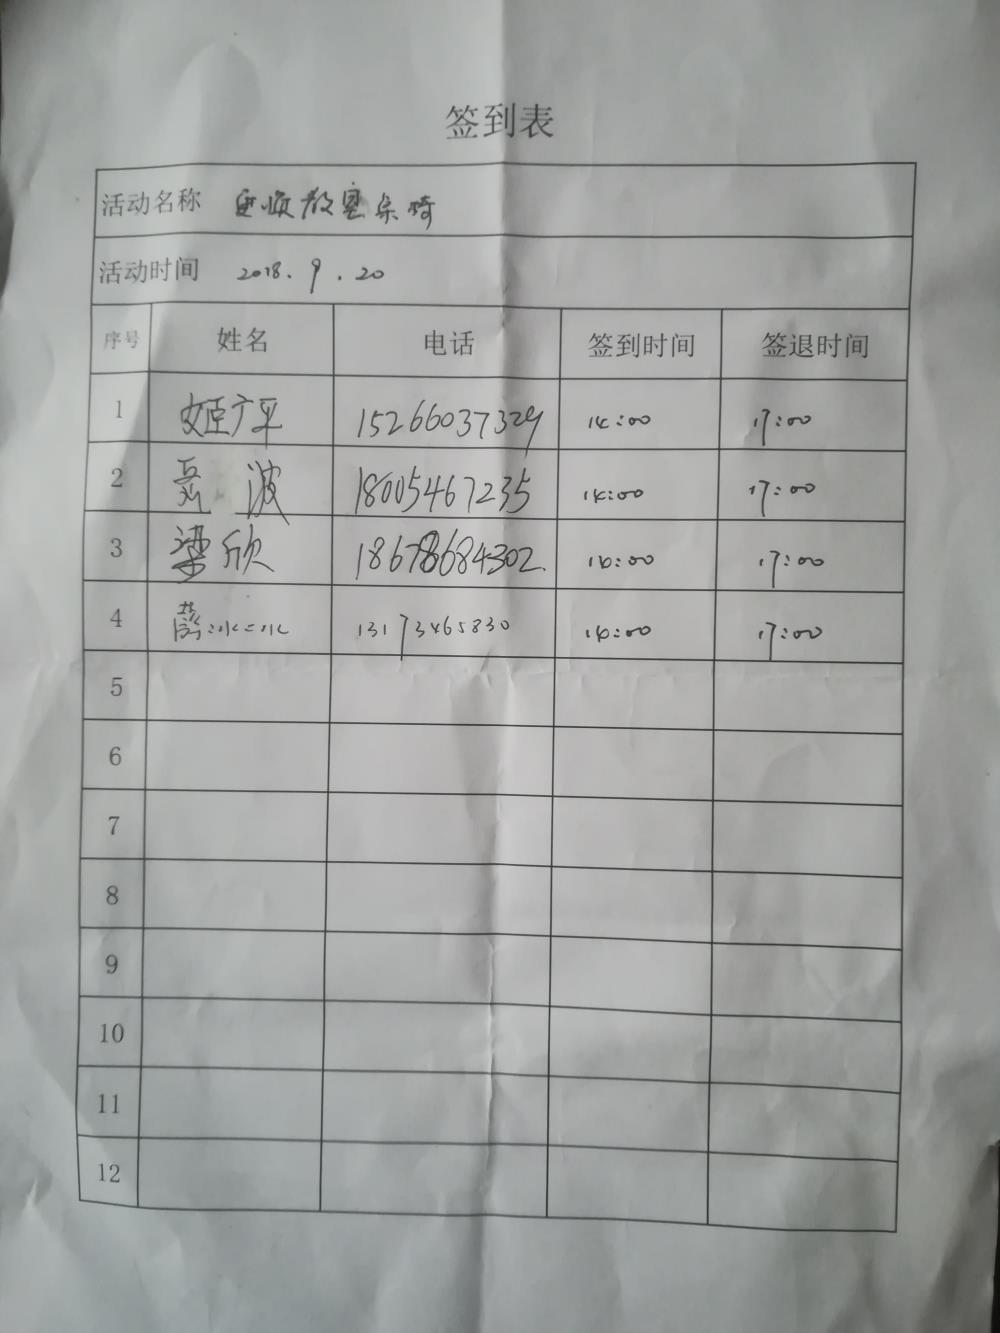 签到表
活动名称 更换教室桌椅
活动时间 2018.9.20
序号 姓名 电话 签到时间 签退时间
1 姬广平 15266037329 14:00 17:00
2 岳波 18005467235 14:00 17:00
3 梁欣 18678684302. 14:00 17:00
4 13173465830 14:00 17:00
5
6
7
8
9
10
11
12